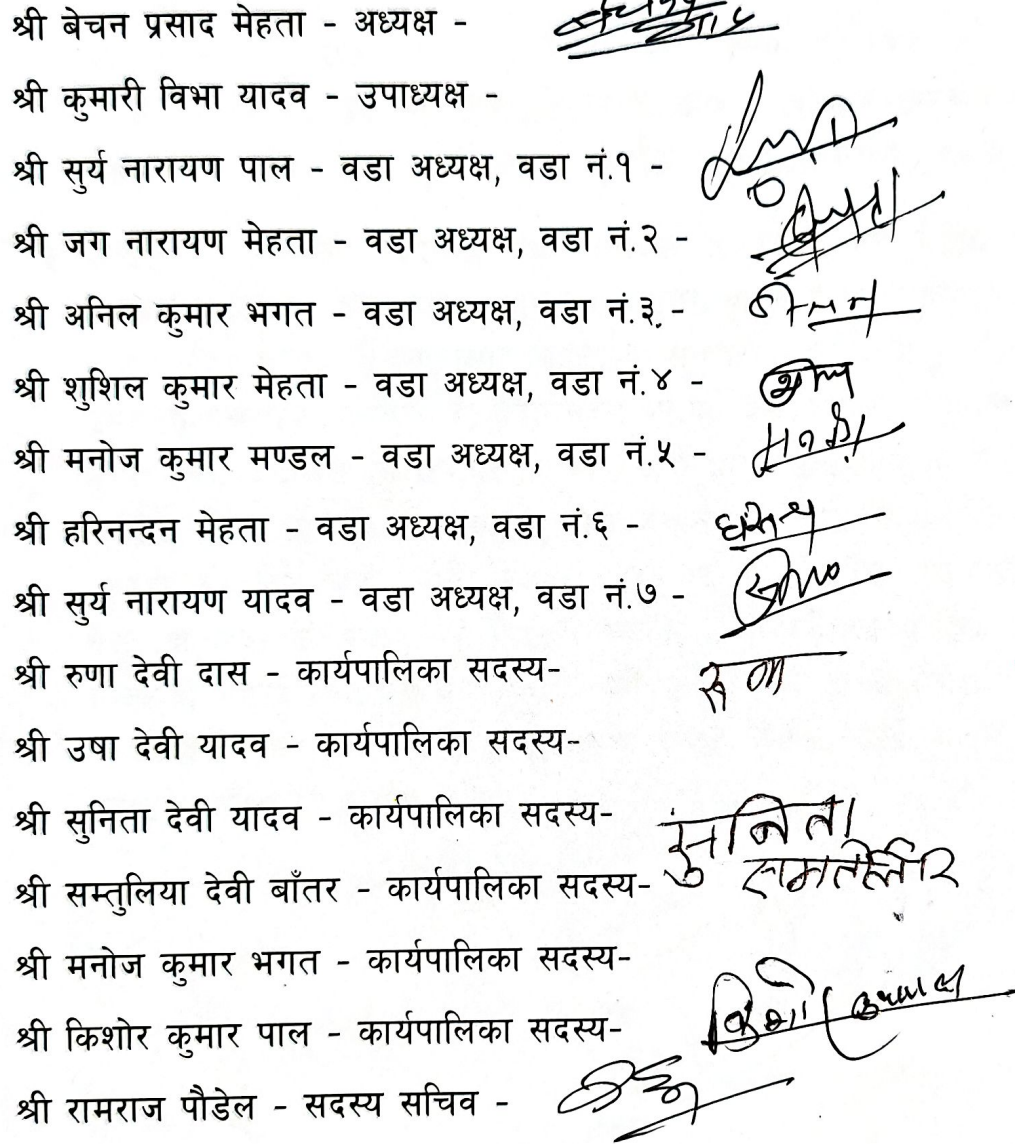 श्री बेचन प्रसाद मेहता - अध्यक्ष -
श्री कुमारी विभा यादव - उपाध्यक्ष -
श्री सुर्य नारायण पाल - वडा अध्यक्ष, वडा नं.१ -
श्री जग नारायण मेहता - वडा अध्यक्ष, वडा नं.२ -
श्री अनिल कुमार भगत - वडा अध्यक्ष, वडा नं.३.-
श्री शुशिल कुमार मेहता - वडा अध्यक्ष, वडा नं.४ -
श्री मनोज कुमार मण्डल - वडा अध्यक्ष, वडा नं.५ -
श्री हरिनन्दन मेहता - वडा अध्यक्ष, वडा नं.६ -
श्री सुर्य नारायण यादव - वडा अध्यक्ष, वडा नं.७ -
श्री रुणा देवी दास - कार्यपालिका सदस्य- रुणा
श्री उषा देवी यादव - कार्यपालिका सदस्य-
श्री सुनिता देवी यादव - कार्यपालिका सदस्य- सुनिता
श्री सम्तुलिया देवी बाँतर - कार्यपालिका सदस्य-
श्री मनोज कुमार भगत - कार्यपालिका सदस्य-
श्री किशोर कुमार पाल - कार्यपालिका सदस्य- किशोर
श्री रामराज पौडेल - सदस्य सचिव -